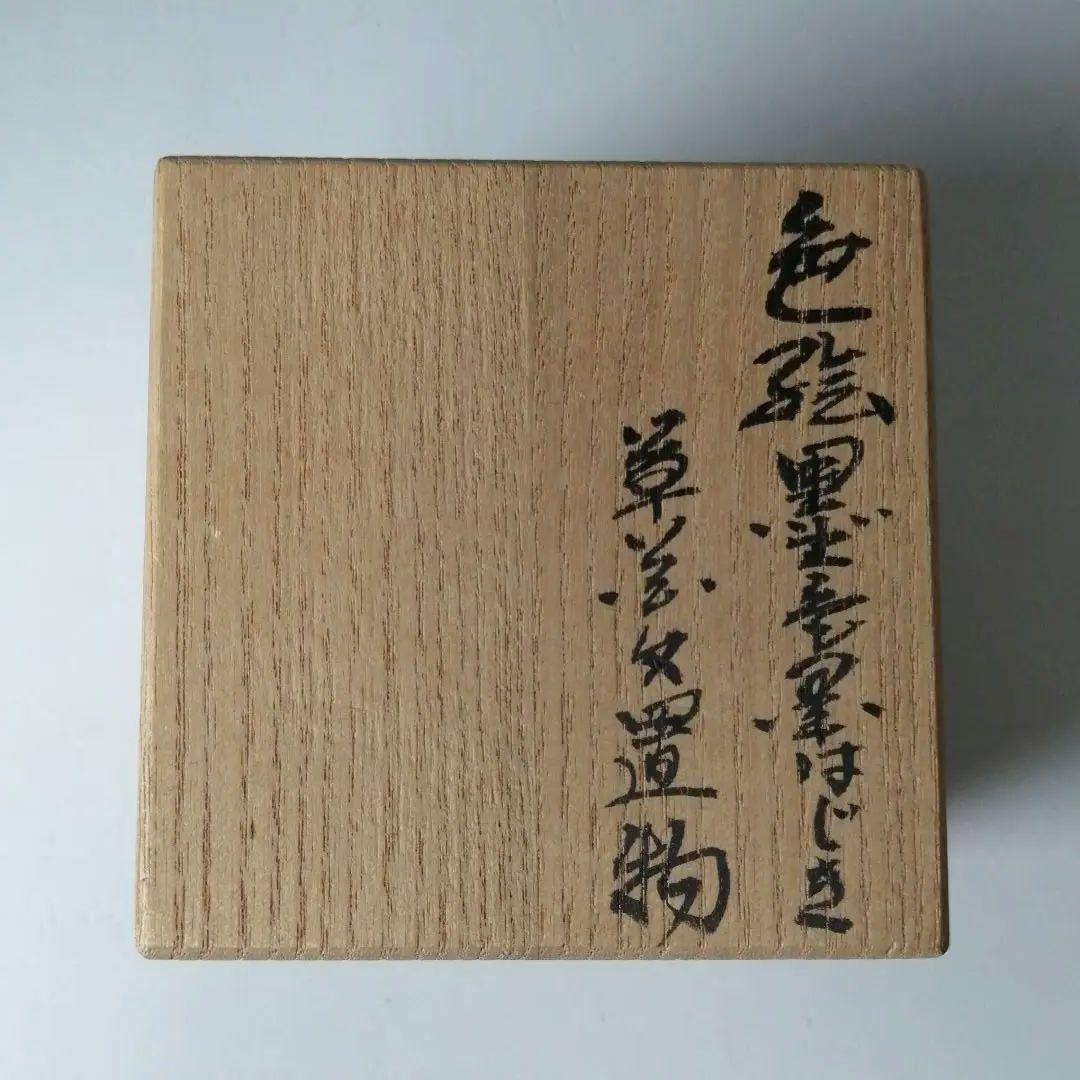 色絵墨色墨はじき
草花文置物